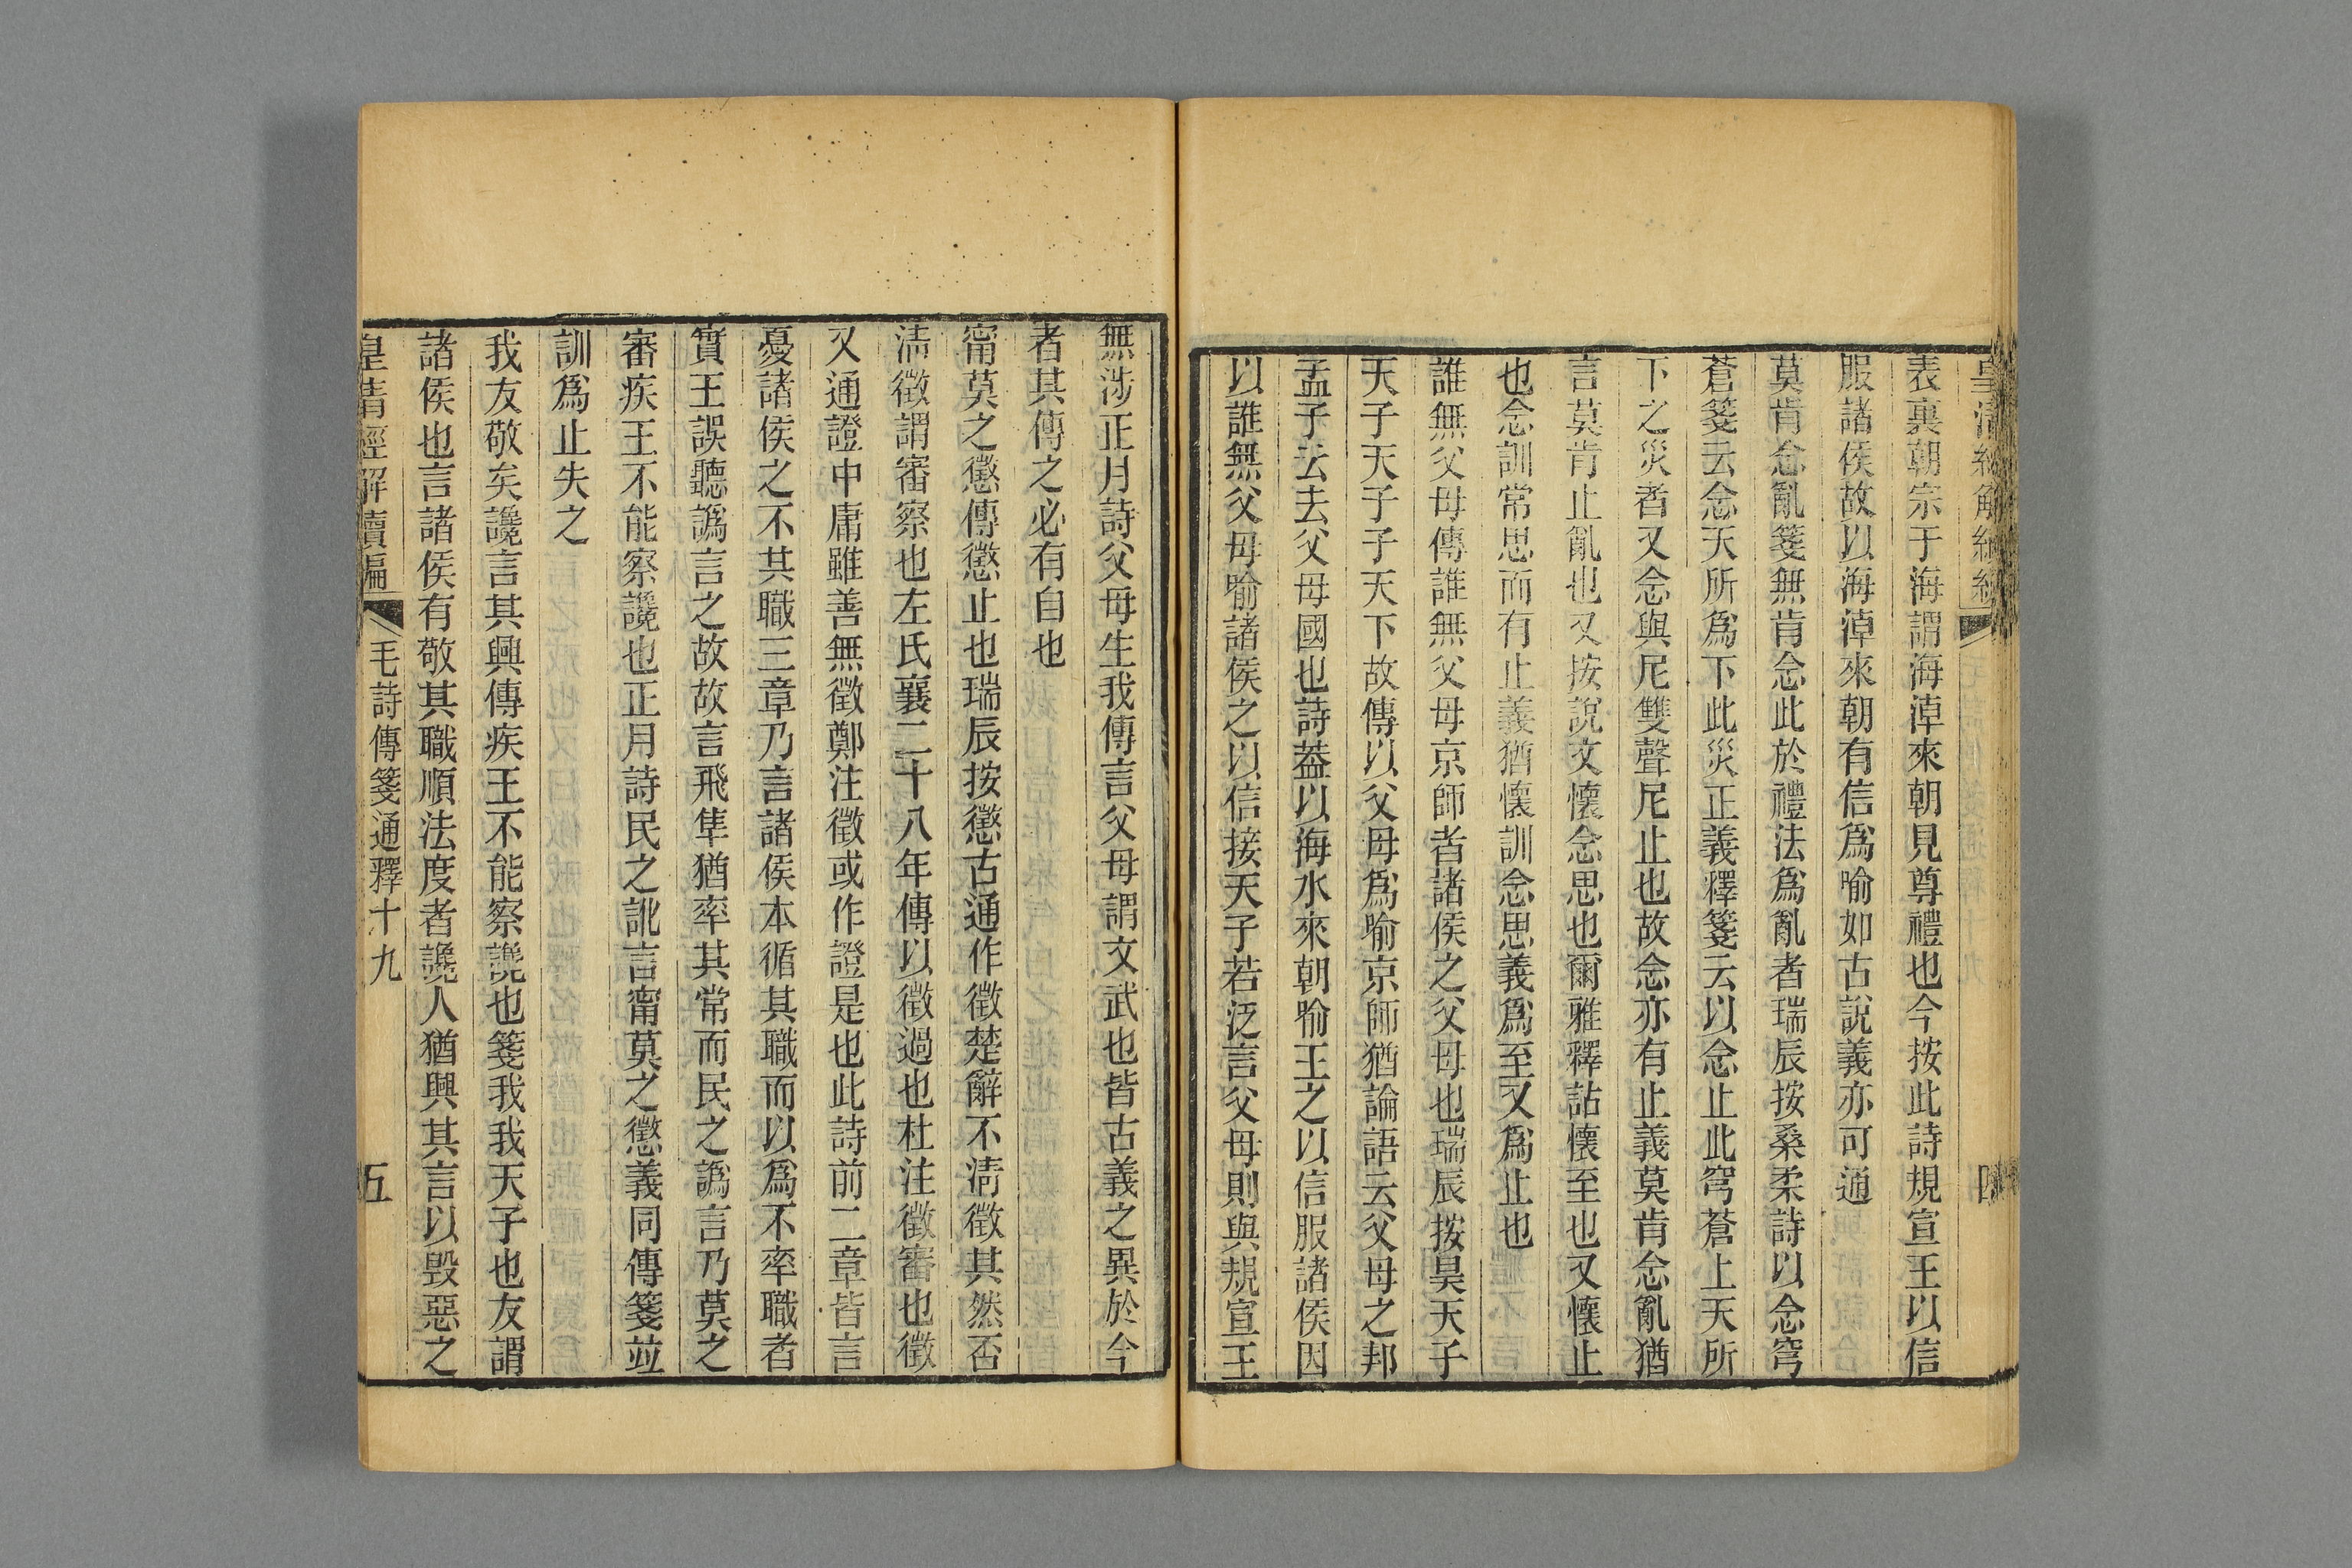 表裏朝宗于海謂海淖來朝見尊禮也今按此詩規宣王以信
服諸侯故以海淖來朝有信爲喻如古說義亦可通
莫肯念亂箋無肯念此於禮法爲亂者瑞辰按桑柔詩以念穹
蒼箋云念天所爲下此災正義釋箋云以念止此穹蒼上天所
下之災者又念與尼雙聲尼止也故念亦有止義莫肯念亂猶
言莫肯止亂也又按說文懷念思也爾雅釋詁懷至也又懷止
也念訓常思而有止義猶懷訓念思義爲至又爲止也
誰無父母傳誰無父母京師者諸侯之父母也瑞辰按昊天子
天子天子子天下故傳以父母爲喻京師猶論語云父母之邦
孟子去去父母國也詩葢以海水來朝喻王之以信服諸侯因
以誰無父母喻諸侯之以信接天子若泛言父母則與規宣王
無涉正月詩父母生我傳言父母謂文武也皆古義之異於今
者其傳之必有自也
甯莫之懲傳懲止也瑞辰按懲古通作徵楚辭不淸徵其然否
淸徵謂審察也左氏襄二十八年傳以徵過也杜注徵審也徵
又通證中庸雖善無徵鄭注徵或作證是也此詩前二章皆言
憂諸侯之不其職三章乃言諸侯本循其職而以爲不率職者
實王誤聽譌言之故故言飛隼猶率其常而民之譌言乃莫之
審疾王不能察讒也正月詩民之訛言甯莫之懲義同傳箋竝
訓爲止失之
我友敬矣讒言其興傳疾王不能察讒也箋我我天子也友謂
諸侯也言諸侯有敬其職順法度者讒人猶興其言以毁惡之
皇清經解續編 毛詩傳箋通釋十九 五